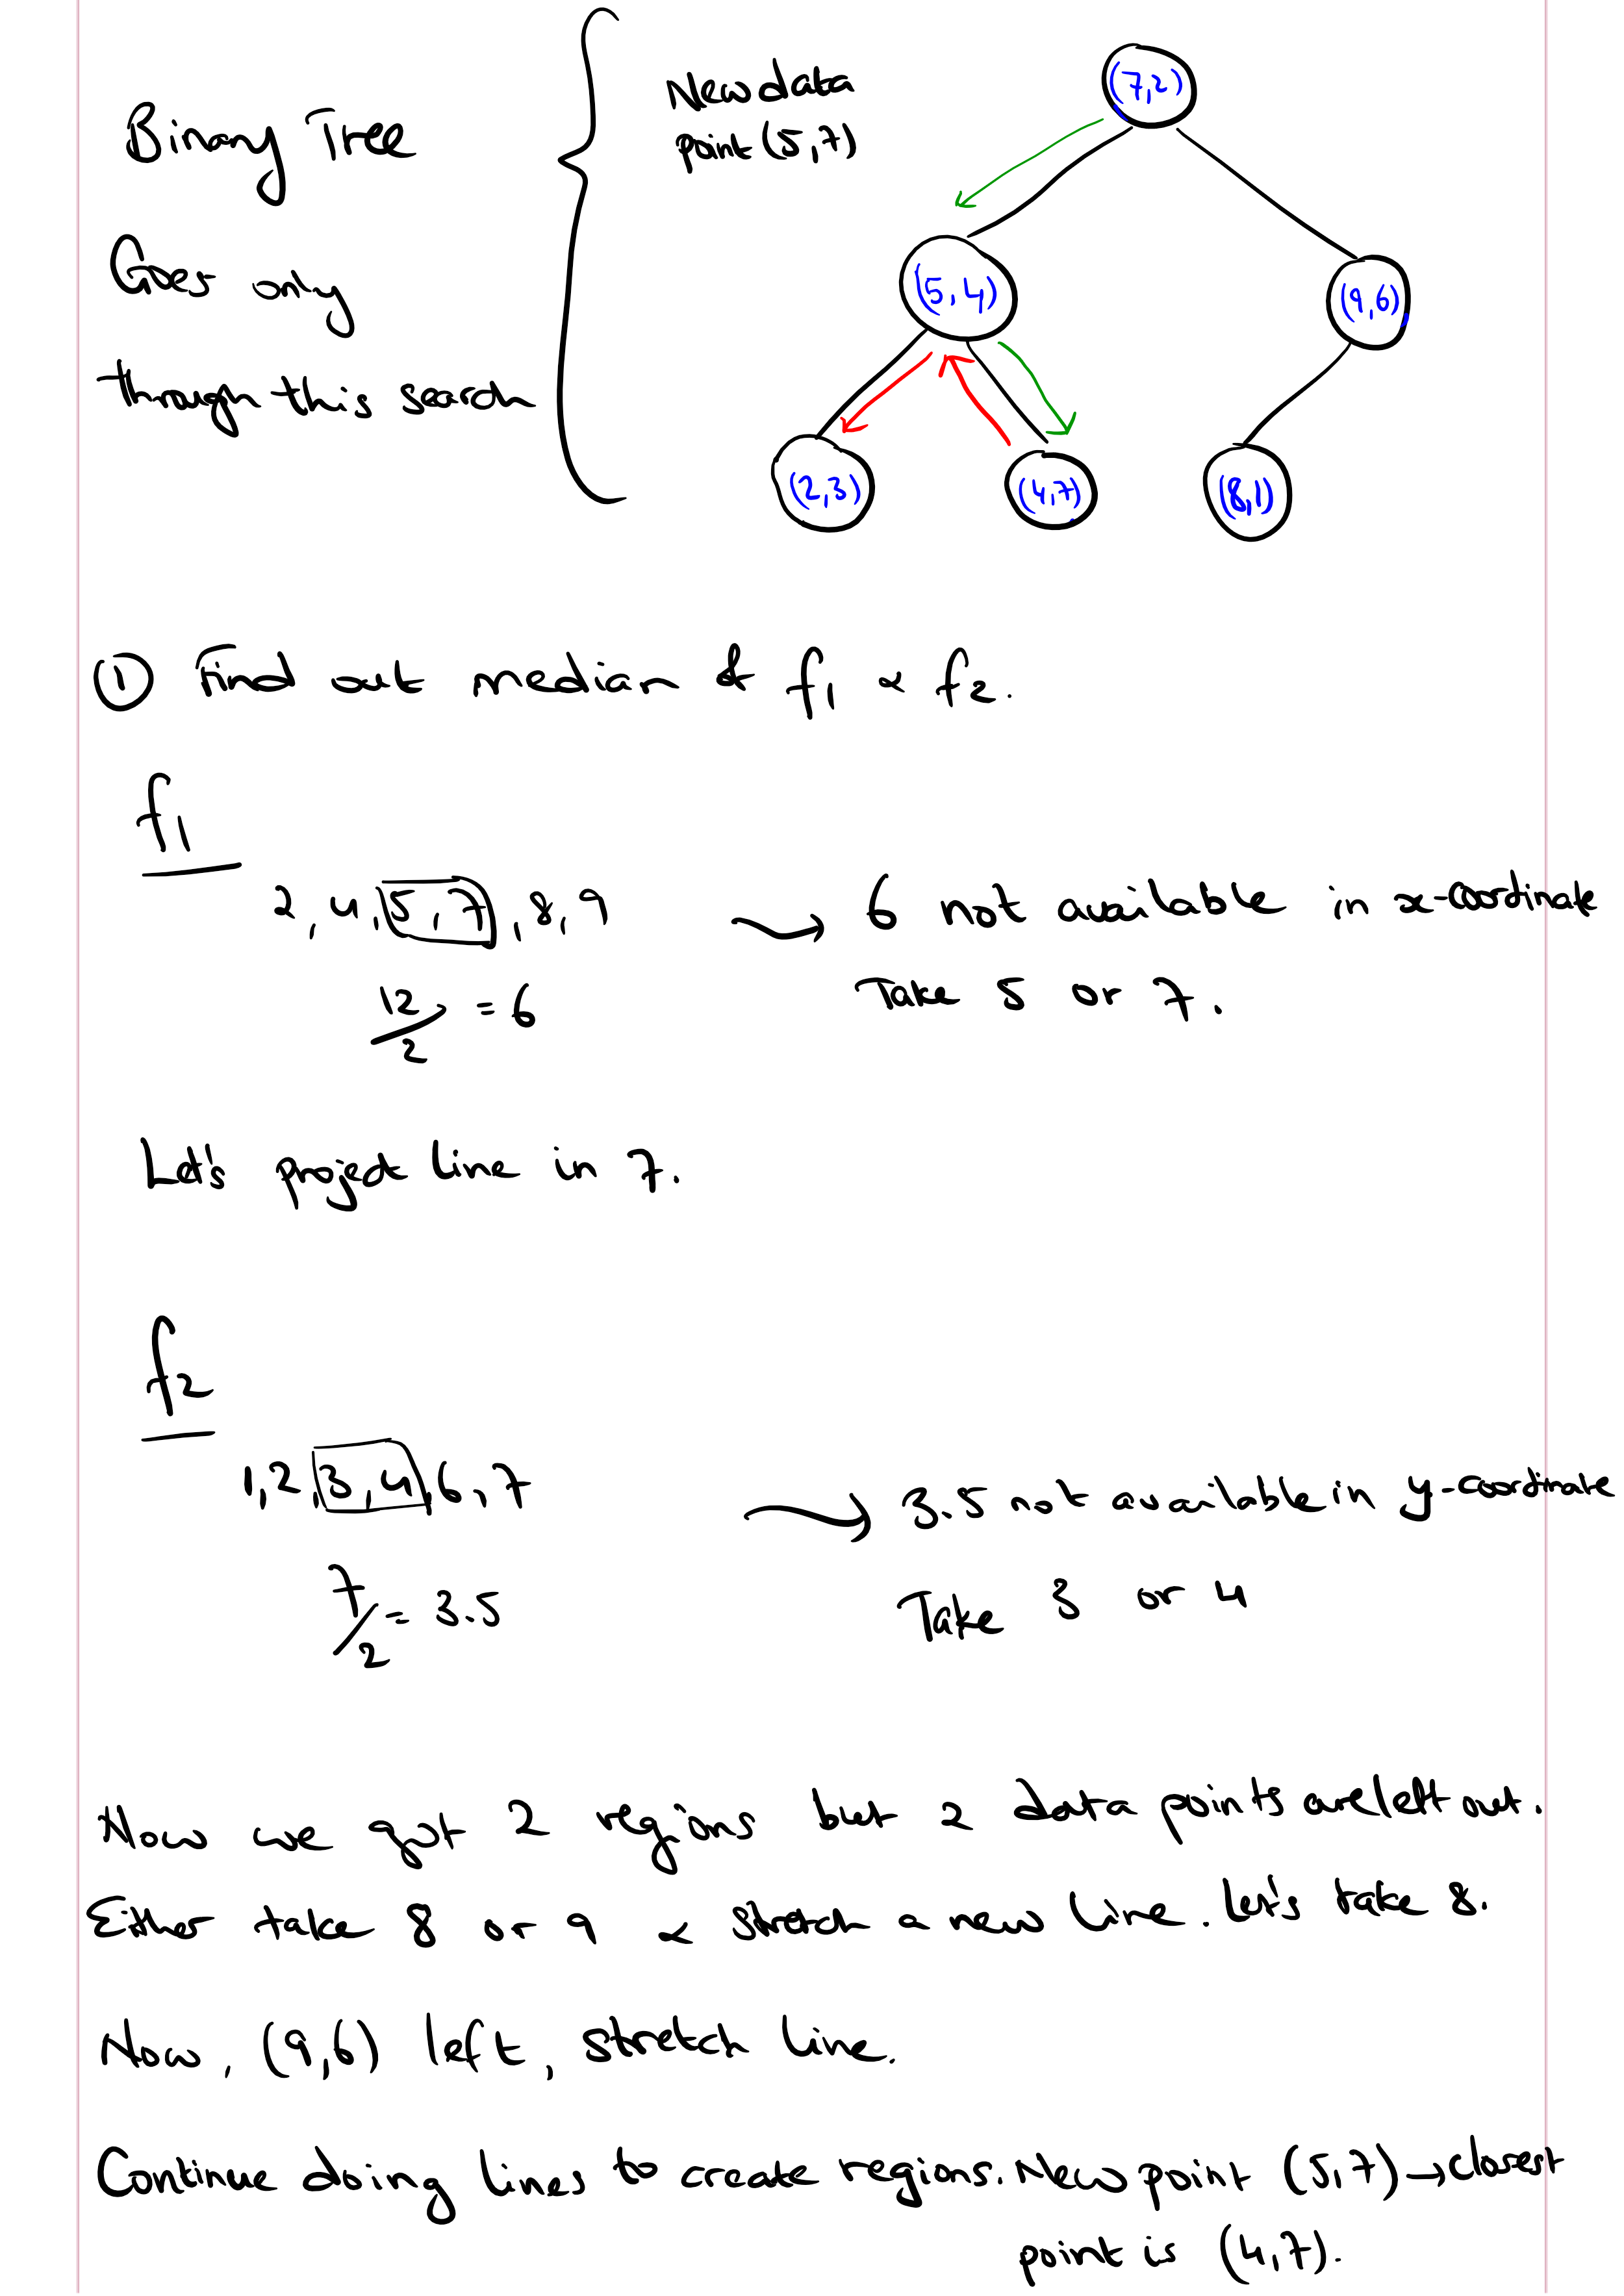 Binary Tree
Goes only
through this search
New data
point (5,7)
(7,2)
(5,4)
(9,6)
(2,3)
(4,7)
(8,1)
① Find out median of f1 & f2.
f1
2, 4, 5, 7, 8, 9 → 6 not available in x-coordinate
12/2 = 6 Take 5 or 7.
Let's project line in 7.
f2
1, 2, 3, 4, 6, 7 → 3.5 not available in y-coordinate
7/2 = 3.5 Take 3 or 4
Now we got 2 regions but 2 data points are left out.
Either take 8 or 9 & stretch a new line. Let's take 8.
Now, (9,6) left, stretch line.
Continue doing lines to create regions. New point (5,7) → closest
point is (4,7).